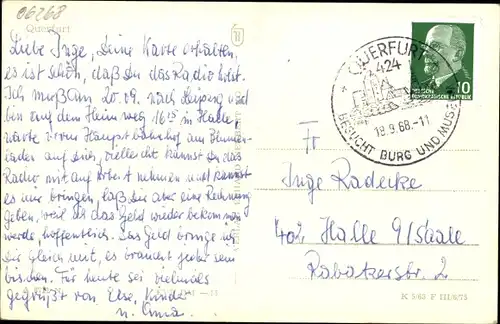 06268
Querfurt
Liebe Inge, Deine Karte erhalten,
es ist schön, daß du das Radio hast.
Ich muß am 20.09. nach Leipzig und
bin auf dem Heimweg 16²⁵ in Halle,
warte vorm Hauptbahnhof am Blumen-
laden auf Dich, vielleicht kannst du das
Radio mit auf Arbeit nehmen und kannst
es mir bringen, laß dir aber eine Rechnung
geben, weil ich das Geld wieder bekommen
werde, hoffentlich. Das Geld bringe ich
dir gleich mit, es braucht jeder sein
bischen. Für heute sei vielmals
gegrüßt von Else, Kinder
u. Oma.
QUERFURT
424
18.9.68.-11
BESUCHT BURG UND MUSEUM
DEUTSCHE DEMOKRATISCHE REPUBLIK
10
Fr
Inge Radecke
402 Halle 9/Saale
Rabatzerstr. 2
K 5/63 F III/6/75